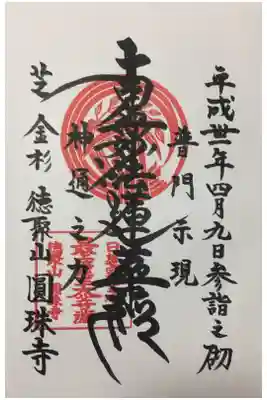 平成丗一年四月九日参詣之砌
普門示現
南無妙法蓮華経
神通之力
芝金杉 徳聚山 圓珠寺